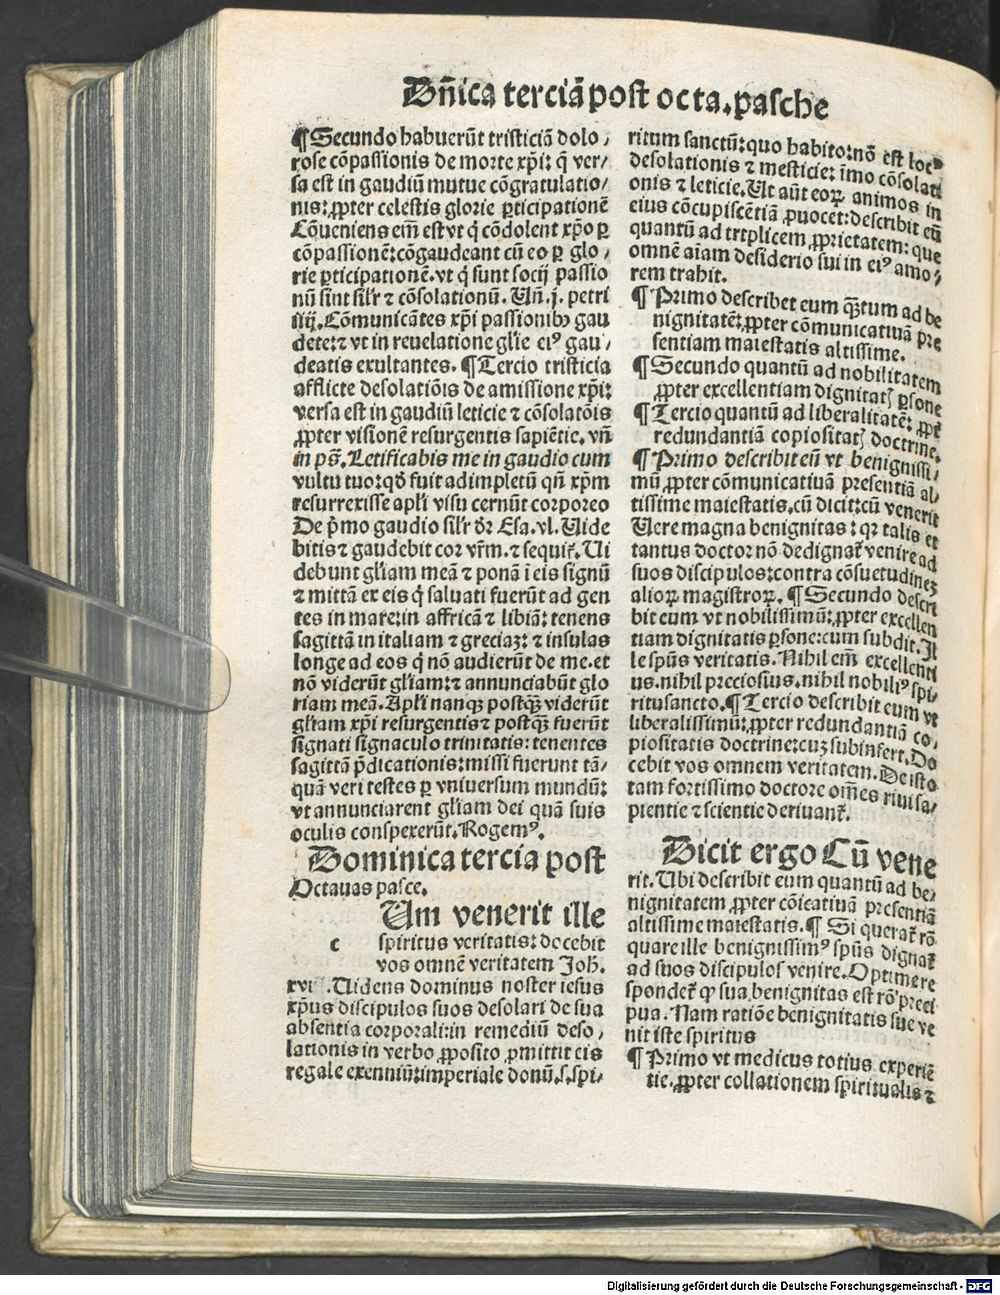 Dn̄ica terciā post octa. pasche
¶ Secundo habuerūt tristiciā dolo⸗
rose cōpassionis de morte xp̄i: q̄ ver⸗
sa est in gaudiū mutue cōgratulatio⸗
nis: ꝓpter celestis glorie ꝑticipationē
Cōueniens eim̄ est vt q̇ cōdolent xp̄o ꝑ
cōpassionē: cōgaudeant cū eo ꝑ glo⸗
rie ꝑticipationē. vt q̇ sunt socij passio
nū sint sil'r ⁊ cōsolationū. Un̄. j. petri
iiij. Cōmunicātes xp̄i passionibꝰ gau
dete: ⁊ vt in reuelatione gl'ie eiꝰ gau⸗
deatis exultantes. ¶ Tercio tristicia
afflicte desolatiōis de amissione xp̄i:
versa est in gaudiū leticie ⁊ cōsolatōis
ꝓpter visionē resurgentis sapiētie. vn̄
in ps̄. Letificabis me in gaudio cum
vultu tuo: qď fuit adimpletū qn̄ xp̄m
resurrexisse apl'i visu cernūt corporeo
De p̄mo gaudio sil'r dr̄ Esa. vl. Uide
bitis ⁊ gaudebit cor vr̄m. ⁊ sequiť. Ui
debunt gl'iam meā ⁊ ponā ī eis signū
⁊ mittā ex eis q̇ saluati fuerūt ad gen
tes in mare: in affricā ⁊ libiā: tenens
sagittā in italiam ⁊ greciaꝫ: ⁊ insulas
longe ad eos q̇ nō audierūt de me. et
nō viderūt gl'iam: ⁊ annunciabūt glo
riam meā. Apl'i nanqꝫ postqꝫ̄ viderūt
gl'iam xp̄i resurgentis ⁊ postqꝫ̄ fuerūt
signati signaculo trinitatis: tenentes
sagittā p̄dicationis: missi fuerunt tā⸗
quā veri testes ꝑ vniuersum mundū:
vt annunciarent gl'iam dei quā suis
oculis conspexerūt. Rogemꝰ.
Dominica tercia post
Octauas pasce.
Um venerit ille
c spiritus veritatis: docebit
vos omnē veritatem Joh.
xvi. Uidens dominus noster iesus
xp̄us discipulos suos desolari de sua
absentia corporali: in remediū deso⸗
lationis in verbo ꝓposito ꝓmittit eis
regale exenniū: imperiale donū. s. spi⸗
ritum sanctū: quo habito: nō est locꝰ
desolationis ⁊ mesticie: īmo cōsolati
onis ⁊ leticie. Ut aūt eoꝝ animos in
eius cōcupiscētiā ꝓuocet: describit eū
quantū ad triplicem ꝓprietatem: que
omnē aīam desiderio sui in eiꝰ amo⸗
rem trahit.
¶ Primo describet eum qꝫ̄tum ad be
nignitatē: ꝓpter cōmunicatiuā pre
sentiam maiestatis altissime.
¶ Secundo quantū ad nobilitatem
ꝓpter excellentiam dignitatꝭ ꝑsone
¶ Tercio quantū ad liberalitatē: ꝓpt̄
redundantiā copiositatꝭ doctrine.
¶ Primo describit eū vt benignissi⸗
mū ꝓpter cōmunicatiuā presentiā al⸗
tissime maiestatis. cū dicit: cū venerit
Uere magna benignitas: qꝛ talis et
tantus doctor nō dedignať venire ad
suos discipulos: contra cōsuetudineꝫ
alioꝝ magistroꝝ. ¶ Secundo descri
bit eum vt nobilissimū: ꝓpter excellen
tiam dignitatis ꝑsone: cum subdit. Il
le spūs veritatis. Nihil em̄ excellenti
us. nihil preciosius. nihil nobiliꝰ spi⸗
ritu sancto. ¶ Tercio describit eum vt
liberalissimū: ꝓpter redundantiā co⸗
piositatis doctrine: cuꝫ subinfert. Do
cebit vos omnem veritatem. De isto
tam fortissimo doctore om̄es riui sa⸗
pientie ⁊ scientie deriuanť.
Dicit ergo Cū vene
rit. Ubi describit eum quantū ad be⸗
nignitatem ꝓpter cōicatiuā presentiā
altissime maiestatis. ¶ Si querať rō
quare ille benignissimꝰ spūs dignať
ad suos discipulos venire. Optime re
spondeť ꝙ sua benignitas est rō preci
pua. Nam ratiōe benignitatis sue ve
nit iste spiritus
¶ Primo vt medicus totius experiē
tie. ꝓpter collationem spiritualis ⁊
Digitalisierung gefördert durch die Deutsche Forschungsgemeinschaft - DFG